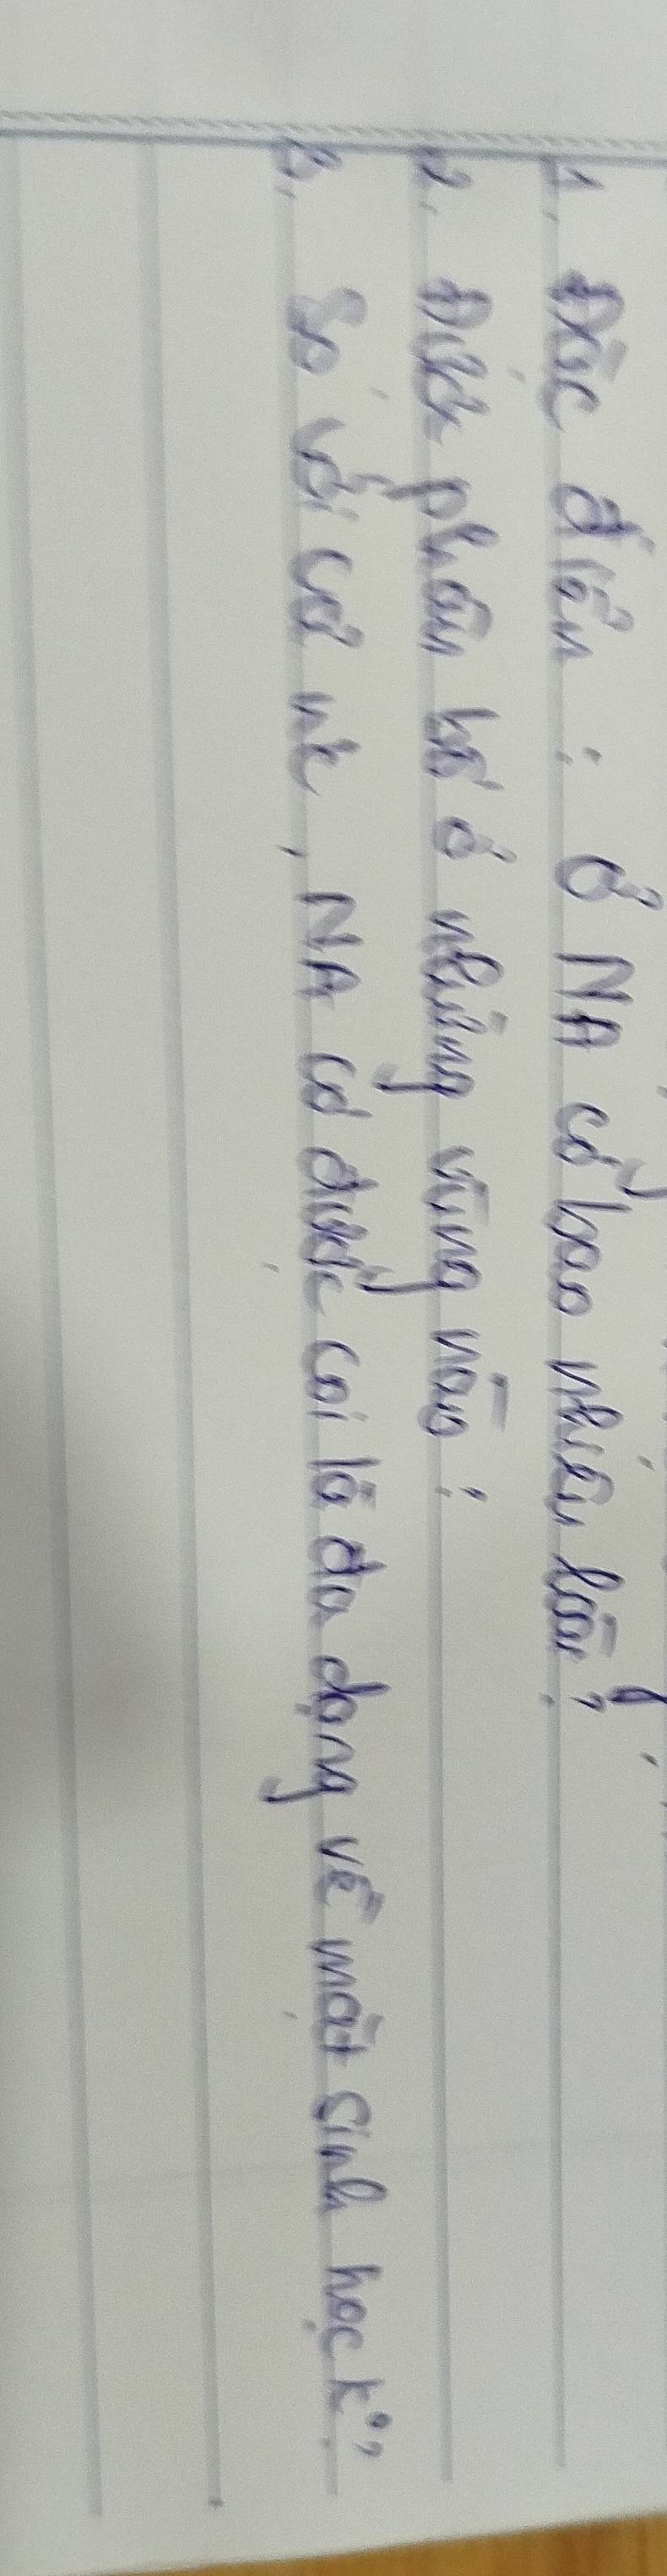 1. Đặc điểm : Ở NA có bao nhiêu loài?
2. Được phân bố ở những vùng nào?
3. So với cả nc, NA có được coi là đa dạng về mặt sinh học k?"